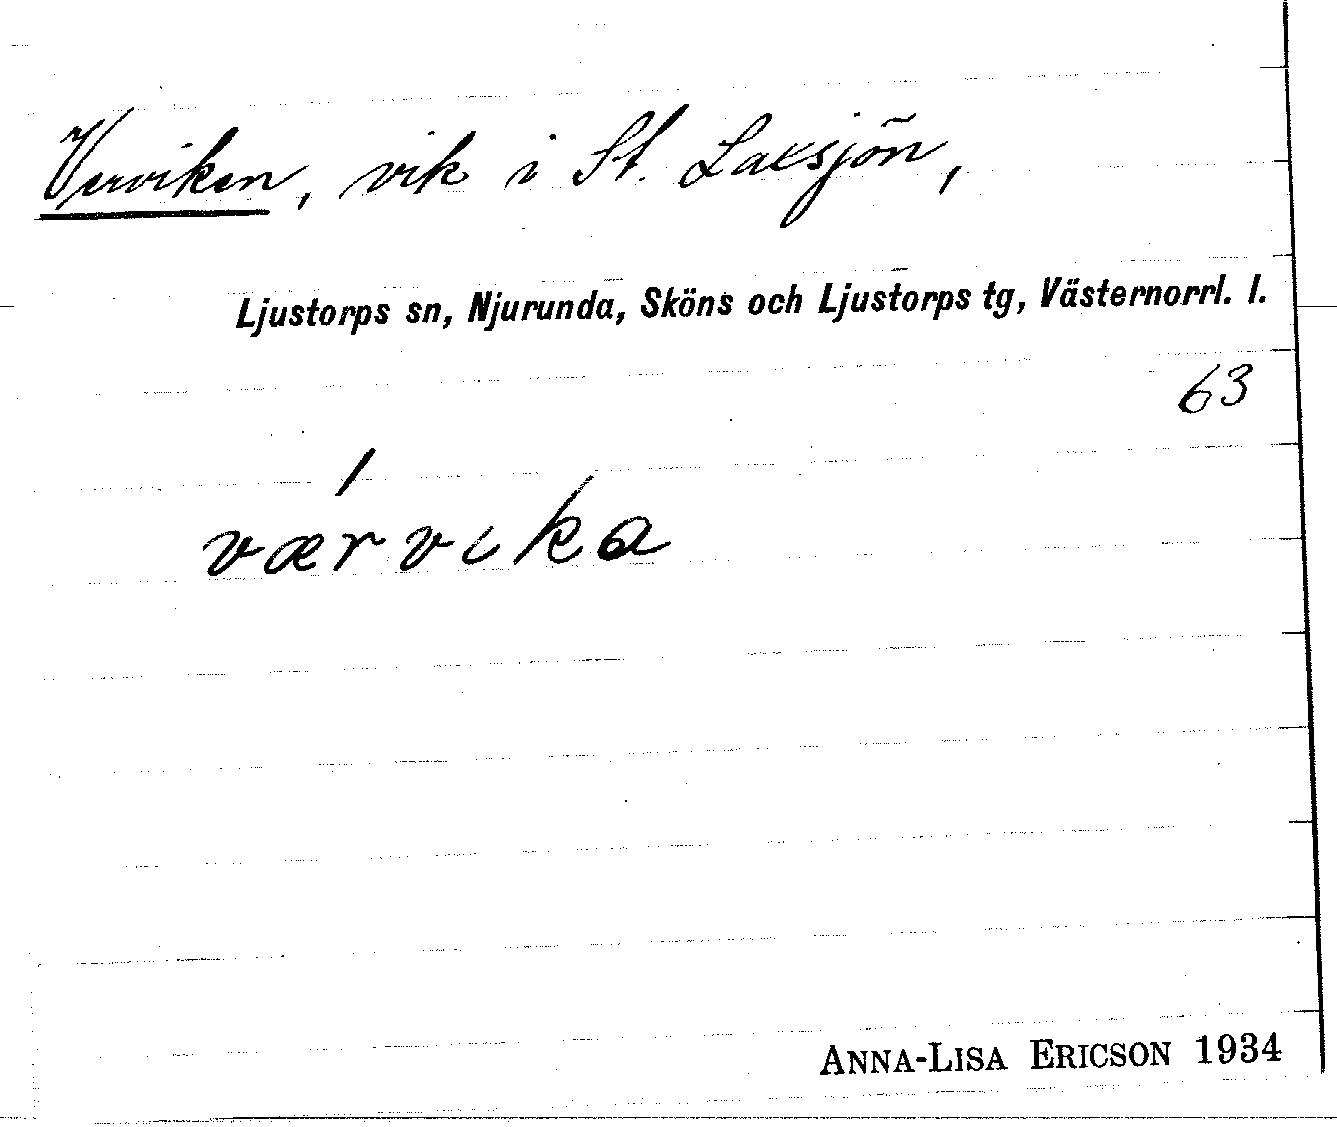 Verviken, vik i St. Laxsjön,
Ljustorps sn, Njurunda, Sköns och Ljustorps tg, Västernorrl. l.
63
værvika
ANNA-LISA ERICSON 1934